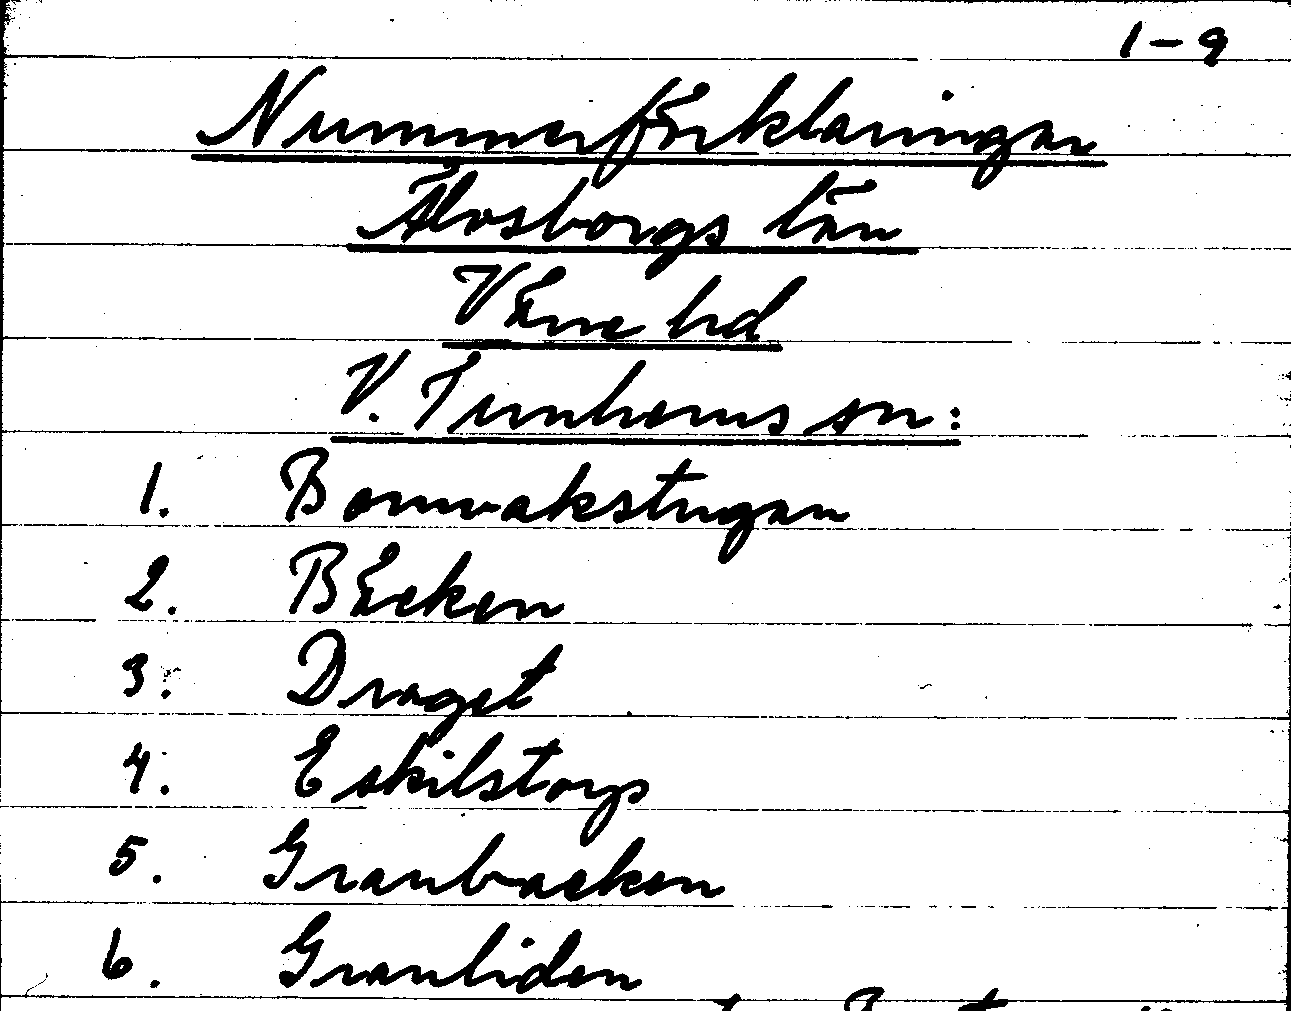 1-9
Nummerförklaringar
Älvsborgs län
Väne hd
V. Tunhems sn:
1. Bomvakstugan
2. Bäcken
3. Draget
4. Eskilstorp
5. Granbacken
6. Granliden